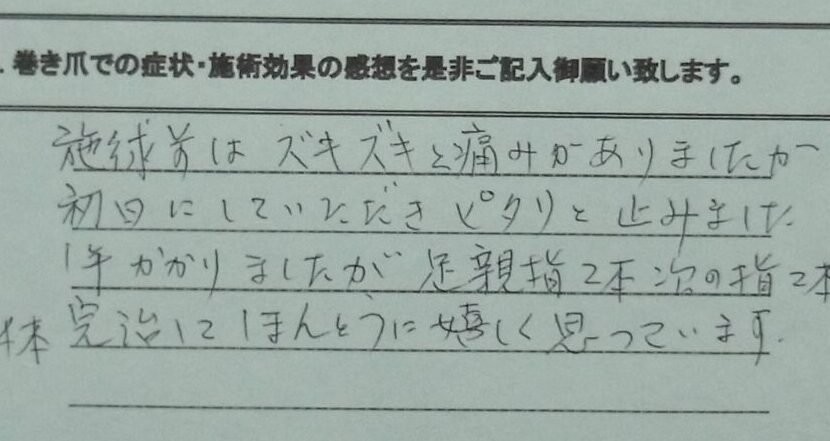 . 巻き爪での症状・施術効果の感想を是非ご記入御願い致します。
施術前は ズキズキと痛みがありましたが
初日にしていただき ピタリと 止みました
1年かかりましたが 足親指2本 次の指2本
4本 完治に ほんとうに嬉しく思っています.